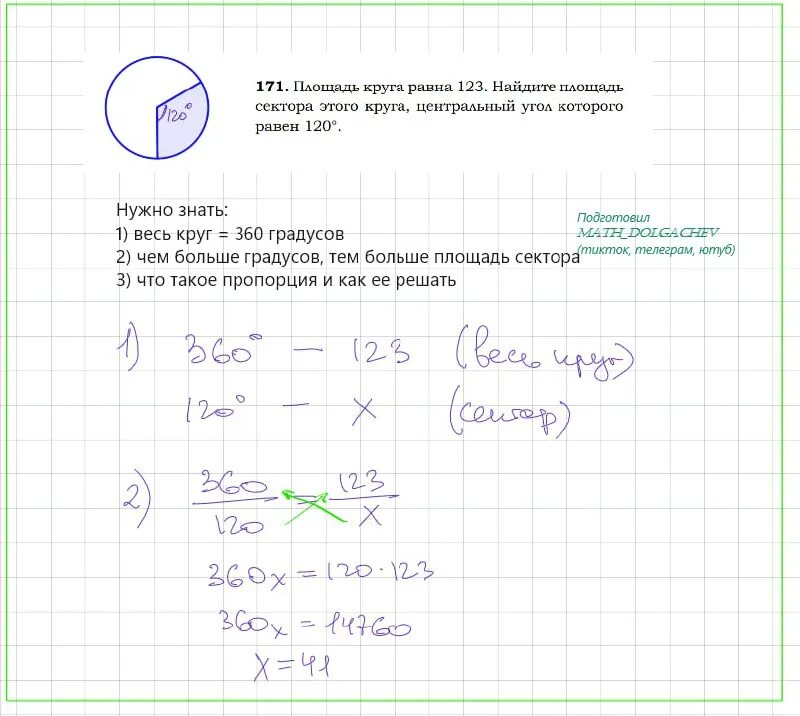 120°
171. Площадь круга равна 123. Найдите площадь
сектора этого круга, центральный угол которого
равен 120°.
Нужно знать:
1) весь круг = 360 градусов
2) чем больше градусов, тем больше площадь сектора
3) что такое пропорция и как ее решать
Подготовил
MATH_DOLGACHEV
(тикток, телеграм, ютуб)
1) 360° — 123 (весь круг)
120° — x (сектор)
2) 360/120 = 123/x
360x = 120·123
360x = 14760
x = 41